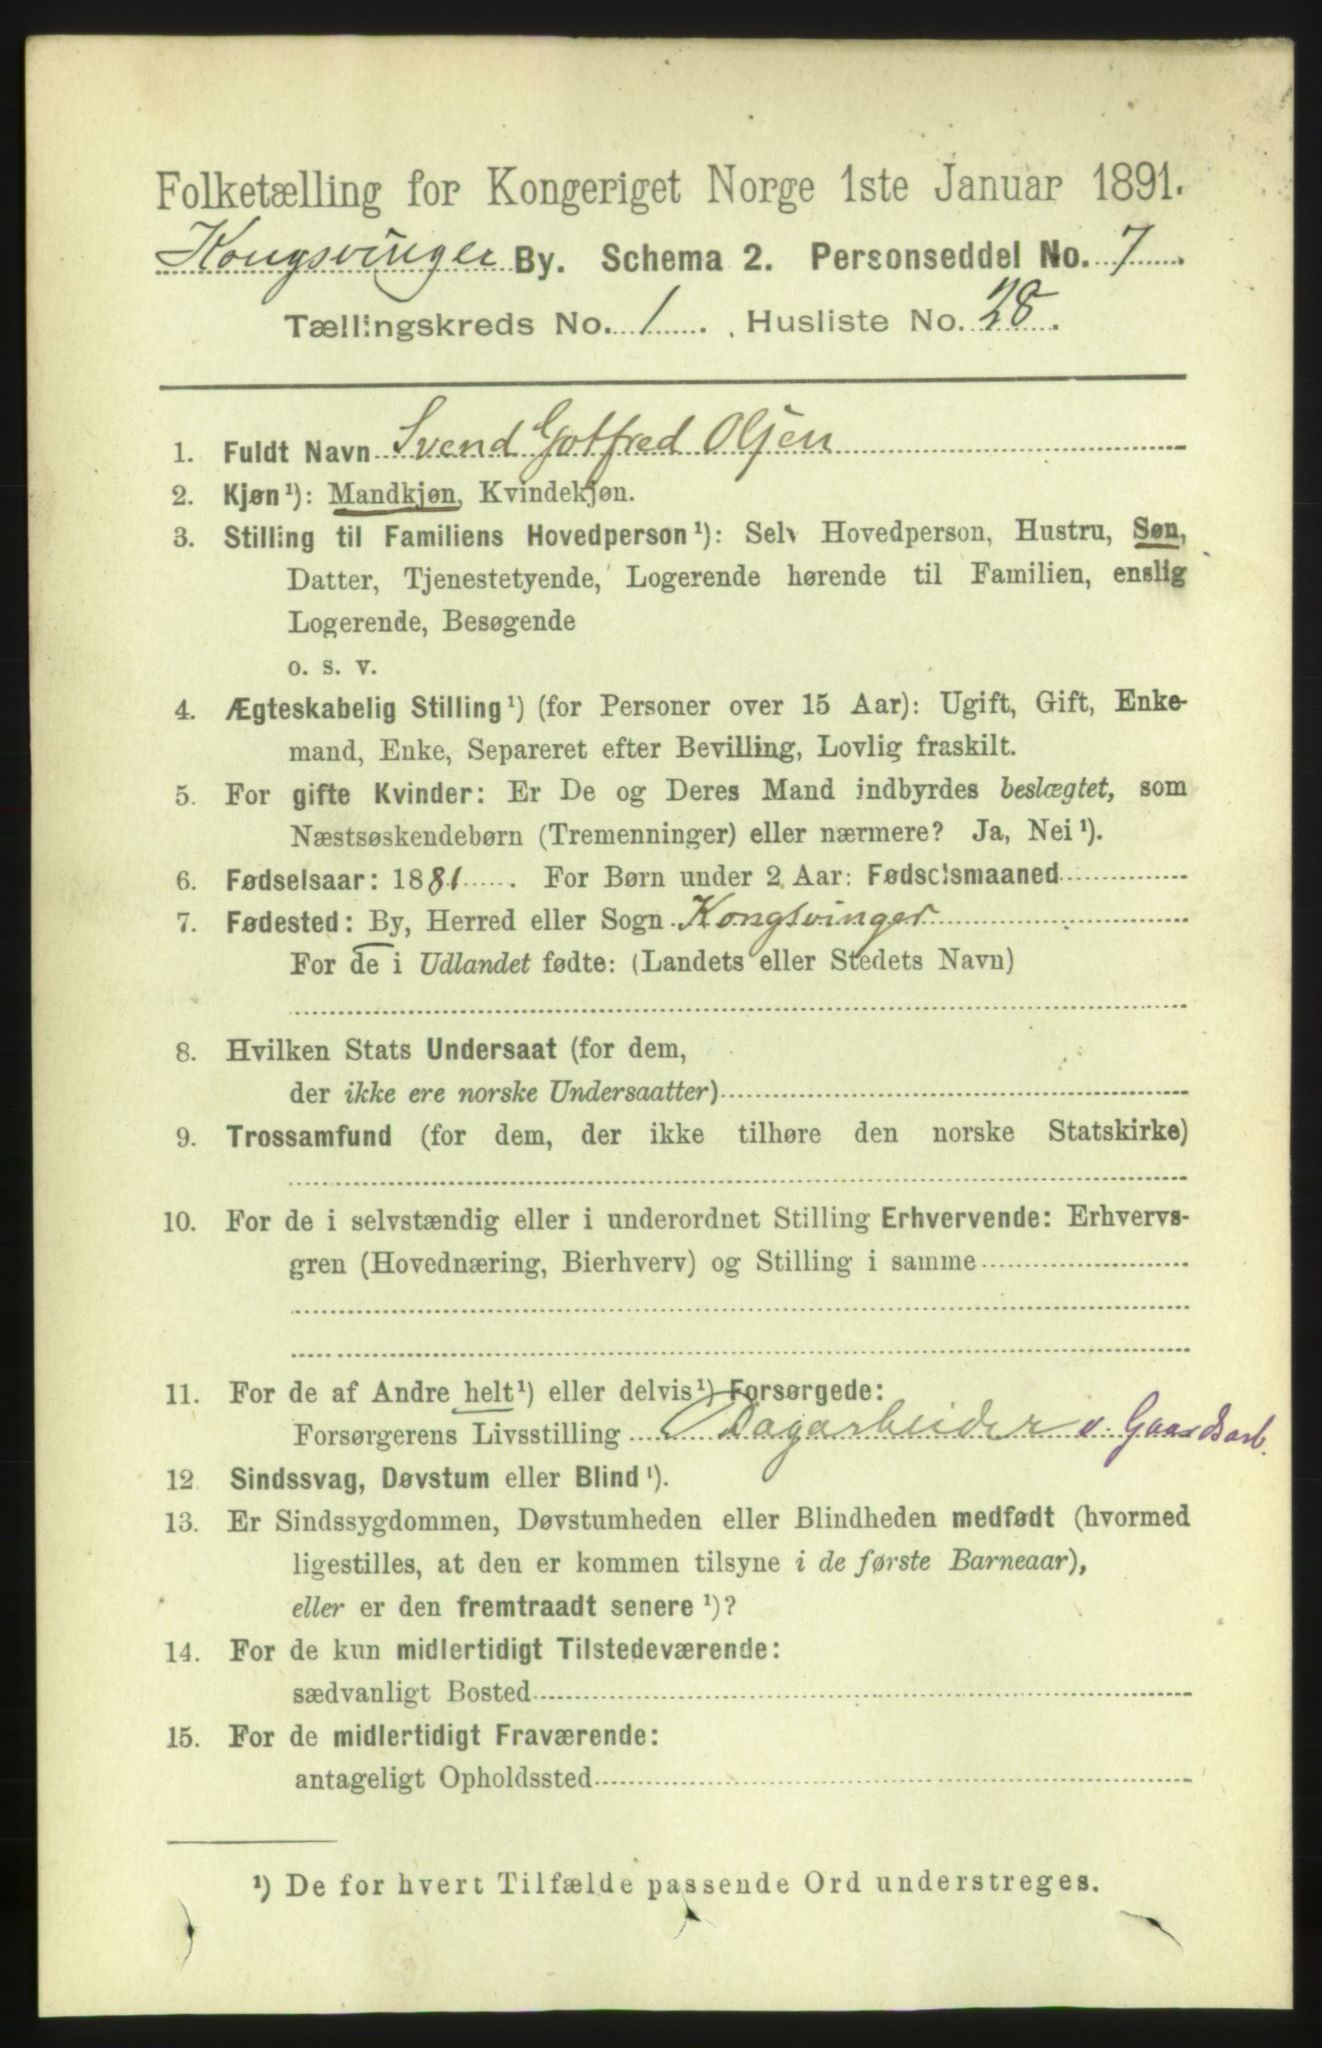 Folketælling for Kongeriget Norge 1ste Januar 1891.
Kongsvinger By. Schema 2. Personseddel No. 7
Tællingskreds No. 1. Husliste No. 28.
1. Fuldt Navn Svend Gotfred Olsen
2. Kjøn¹): Mandkjøn, Kvindekjøn.
3. Stilling til Familiens Hovedperson¹): Selv Hovedperson, Hustru, Søn,
Datter, Tjenestetyende, Logerende hørende til Familien, enslig
Logerende, Besøgende
o. s. v.
4. Ægteskabelig Stilling¹) (for Personer over 15 Aar): Ugift, Gift, Enke-
mand, Enke, Separeret efter Bevilling, Lovlig fraskilt.
5. For gifte Kvinder: Er De og Deres Mand indbyrdes beslægtet, som
Næstsøskendebørn (Tremenninger) eller nærmere? Ja, Nei¹).
6. Fødselsaar: 1881. For Børn under 2 Aar: Fødselsmaaned
7. Fødested: By, Herred eller Sogn Kongsvinger
For de i Udlandet fødte: (Landets eller Stedets Navn)
8. Hvilken Stats Undersaat (for dem,
der ikke ere norske Undersaatter)
9. Trossamfund (for dem, der ikke tilhøre den norske Statskirke)
10. For de i selvstændig eller i underordnet Stilling Erhvervende: Erhvervs-
gren (Hovednæring, Bierhverv) og Stilling i samme
11. For de af Andre helt¹) eller delvis¹) Forsørgede:
Forsørgerens Livsstilling Dagarbeider v. Gaardsarb.
12. Sindssvag, Døvstum eller Blind¹).
13. Er Sindssygdommen, Døvstumheden eller Blindheden medfødt (hvormed
ligestilles, at den er kommen tilsyne i de første Barneaar),
eller er den fremtraadt senere¹)?
14. For de kun midlertidigt Tilstedeværende:
sædvanligt Bosted
15. For de midlertidigt Fraværende:
antageligt Opholdssted
¹) De for hvert Tilfælde passende Ord understreges.